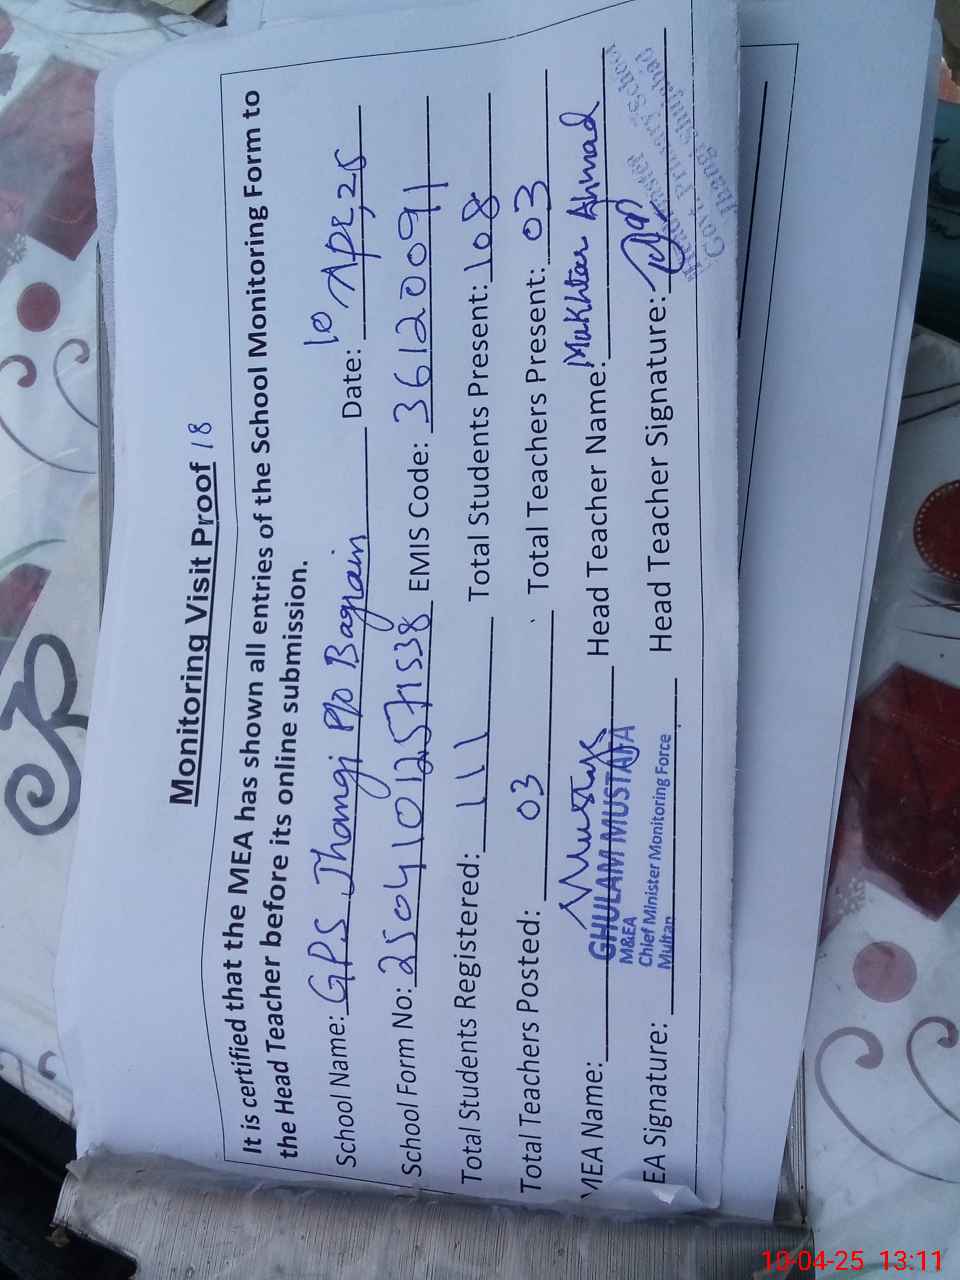 Monitoring Visit Proof 18
It is certified that the MEA has shown all entries of the School Monitoring Form to
the Head Teacher before its online submission.
School Name: GPS Jhangi P/O Bagrain Date: 10 Apr, 25
School Form No: 25041012571538 EMIS Code: 36120091
Total Students Registered: 111 Total Students Present: 108
Total Teachers Posted: 03 Total Teachers Present: 03
MEA Name: Head Teacher Name: Mukhtar Ahmad
GHULAM MUSTAFA
M&EA
Chief Minister Monitoring Force
Multan
EA Signature: Head Teacher Signature:
Govt. Primary School
10-04-25 13:11